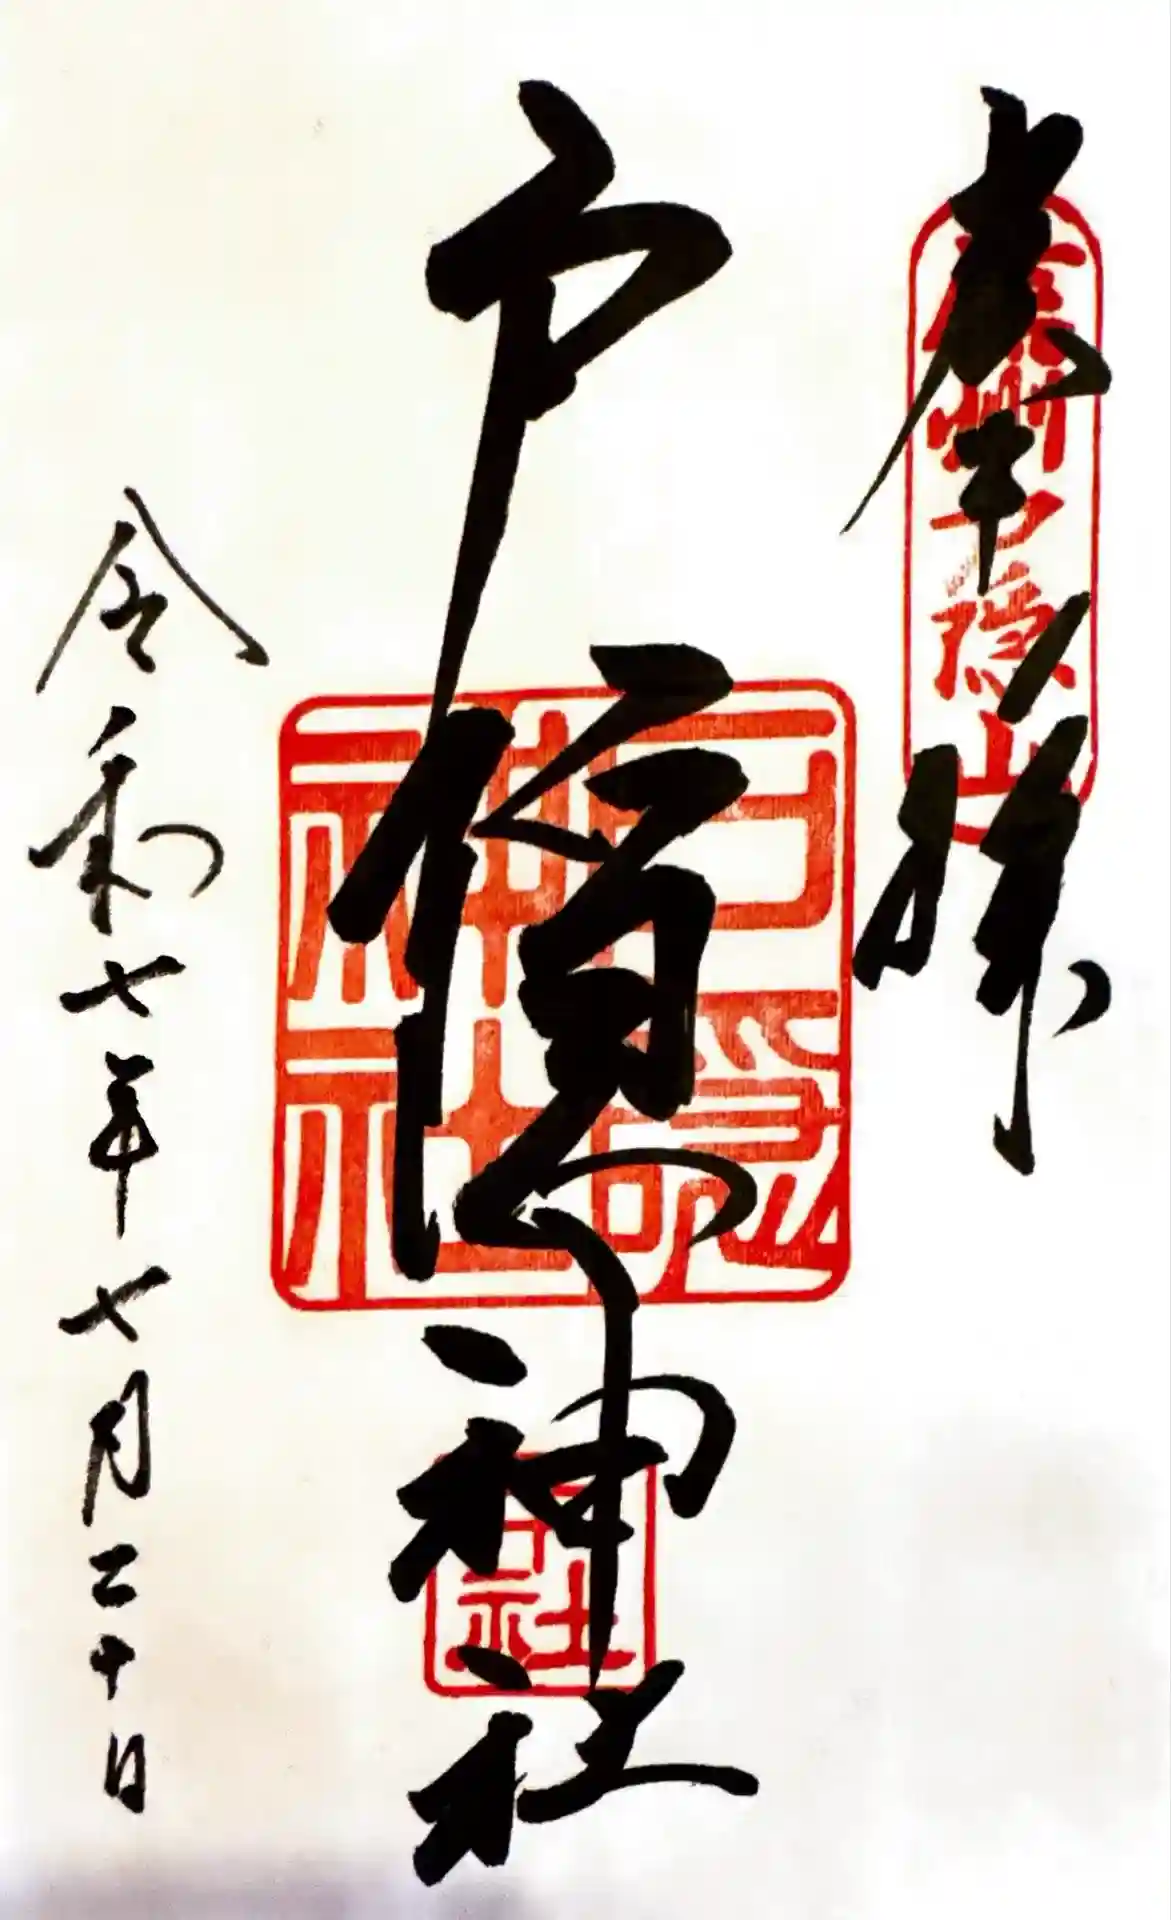 奉拝
信州戸隠山
戸隠神社
戸隠
神社
社
令和七年七月二十日